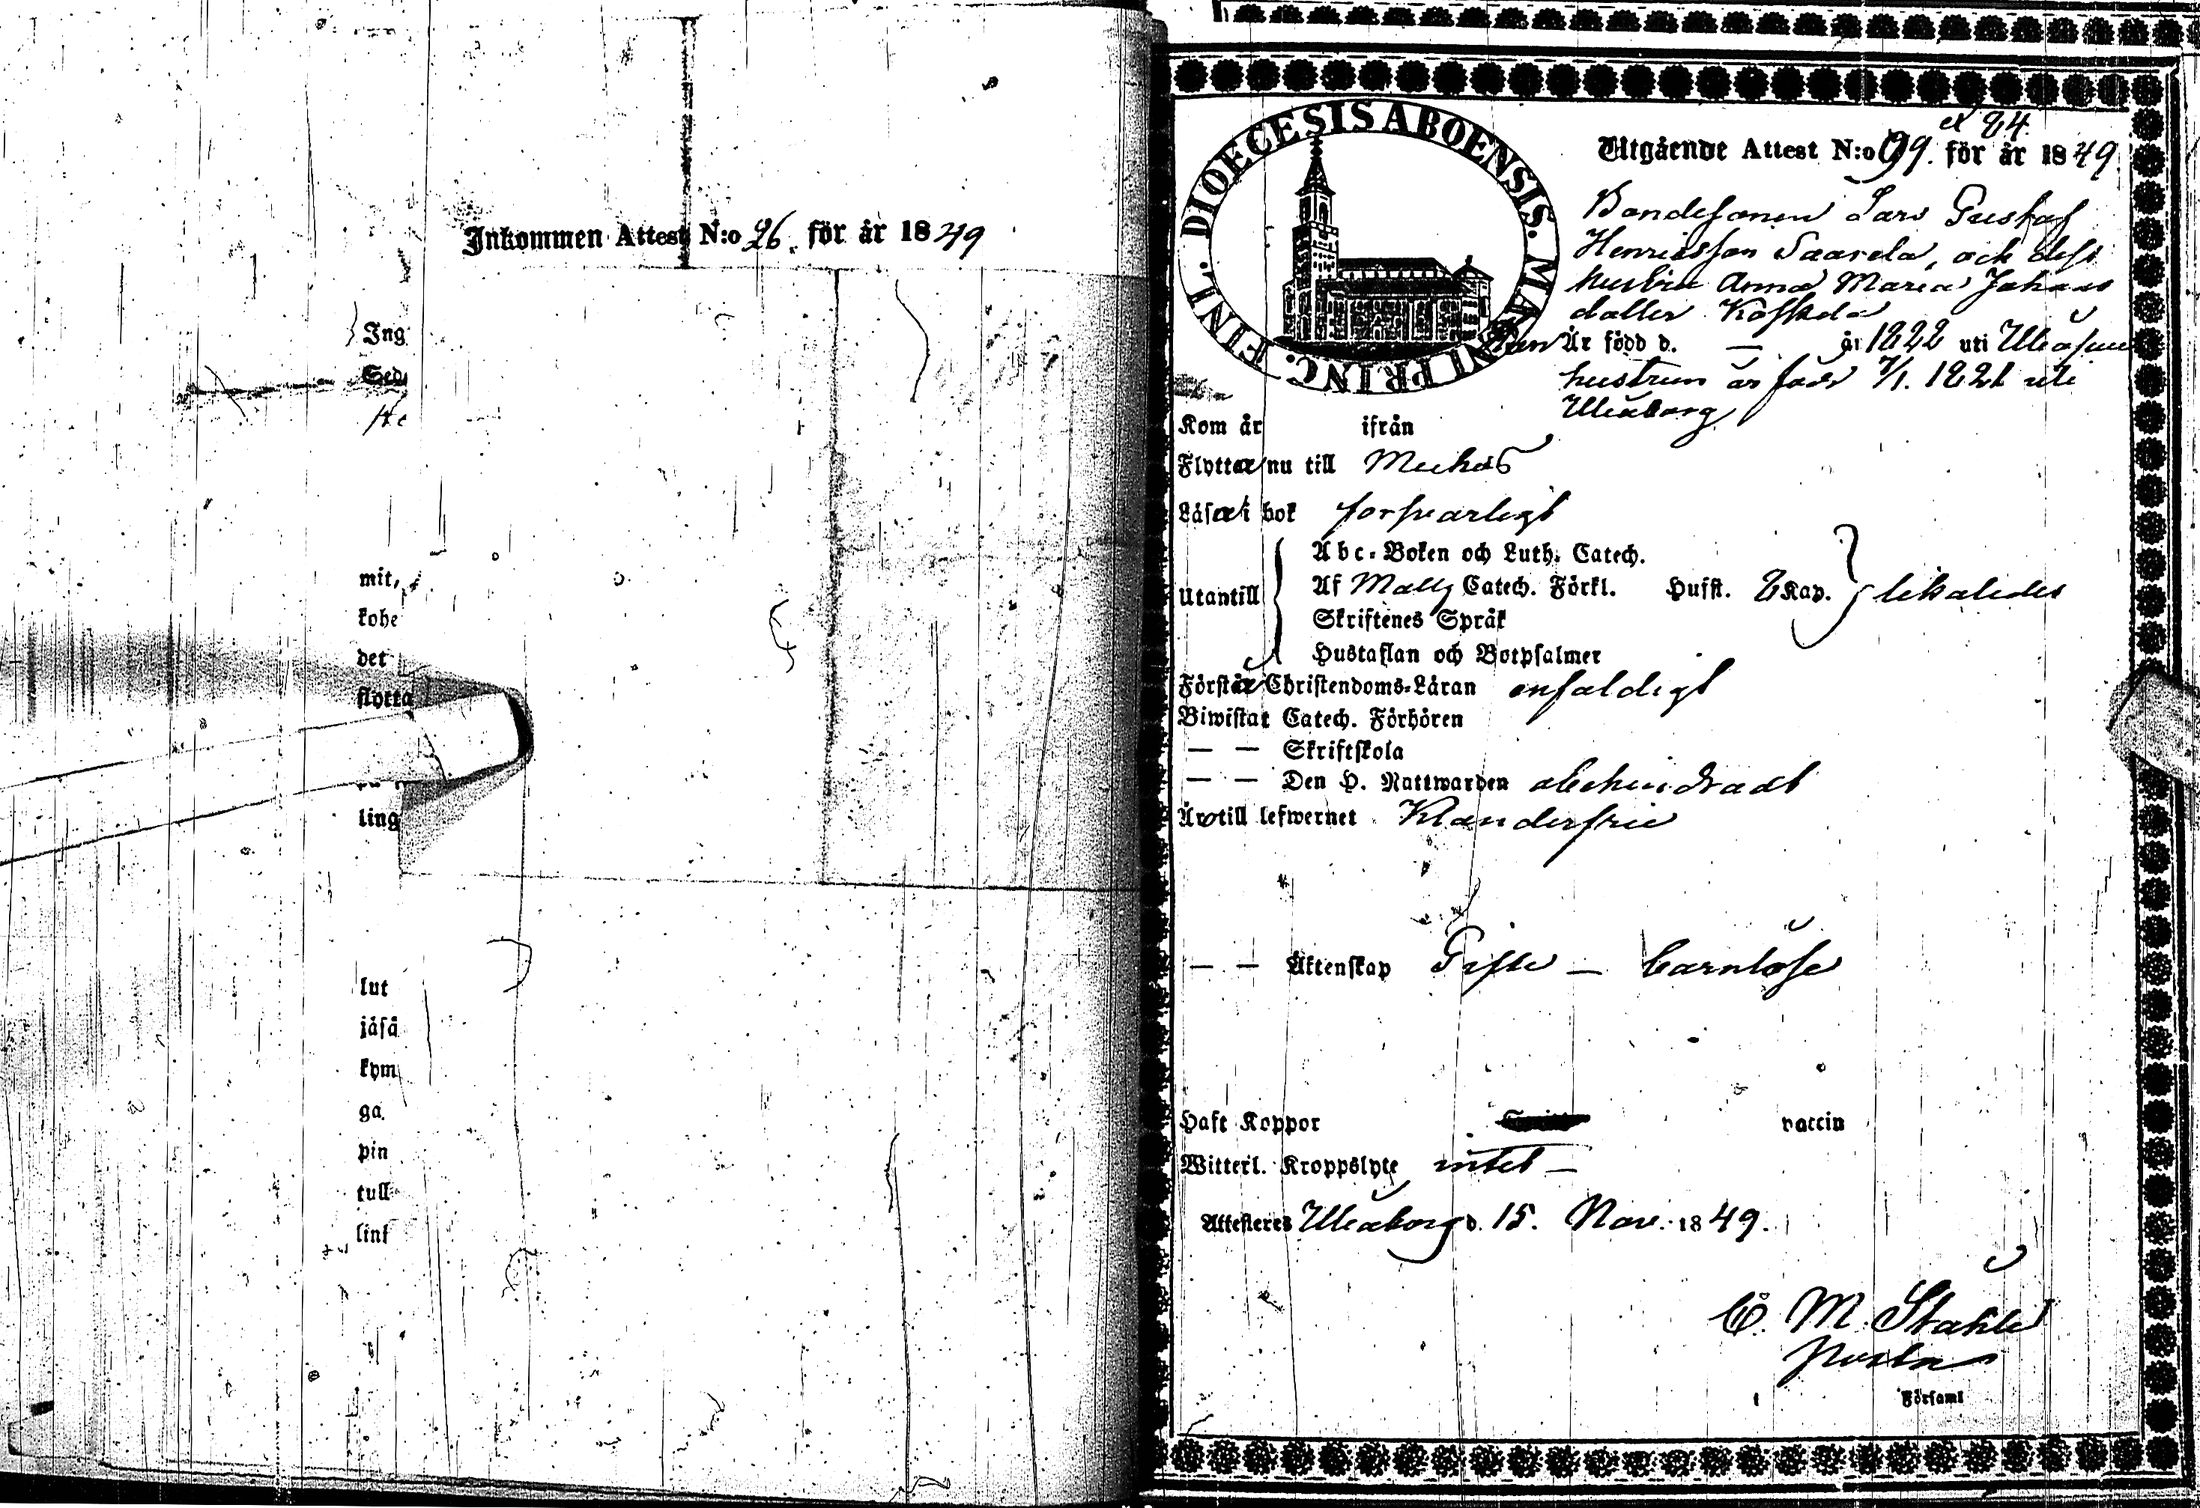 Inkommen Attest N:o 26. för år 1849
Ing
Sed
He
mit,
kohe
det
flytta
ling
lut
jåså
kym
ga
pin
tull
link
DIOECESIS ABOENSIS. MAGNI PRINC. FINL.
Utgående Attest N:o 99. för år 1849.
Bondesonen Lars Gustaf
Henriksson Saarela, och dess
hustru Anna Maria Johans
dotter Koskela
Han Är född d. — år 1822 uti Uleåsuu
hustrun är född 7/1. 1821 uti
Uleåborg
Kom år ifrån
Flytta nu till Muhos
Läsa i bok försvarligt
Utantill
Abc-Boken och Luth. Catech.
Af Catech. Förkl. Husst. 2 Kap. likaledes
Skriftenes Språk
Hustaflan och Botpsalmer
Förstå Christendoms-Läran enfaldigt
Biwistat Catech. Förhören
— — Skriftskola
— — Den H. Nattwarden obehindradt
Äro till lefwernet Klanderfrie
— — Äktenskap Gifte — barnlöse
Haft Koppor vaccin
Witterl. Kroppslyte intet —
Attesteras Uleåborg d. 15. Nov. 1849.
C. M. Ståhle
i Församl